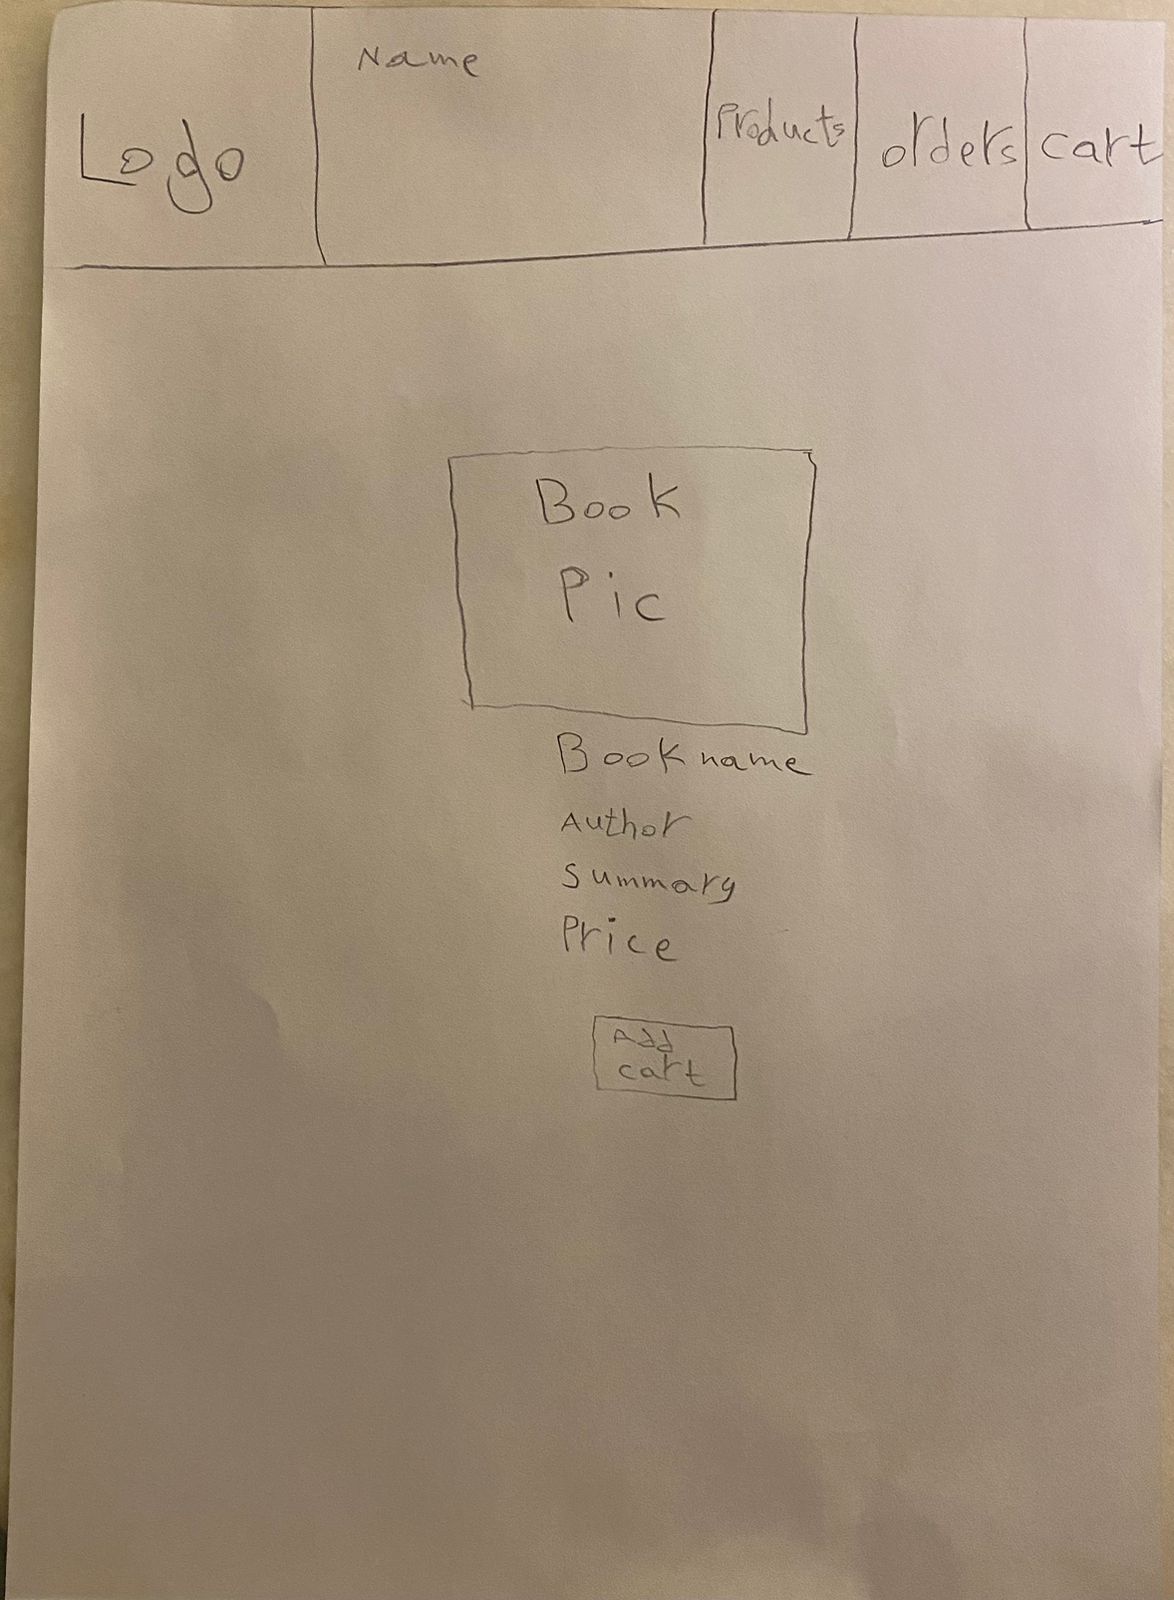 Logo
Name
Products
orders
cart
Book
Pic
Book name
Author
Summary
Price
Add
cart